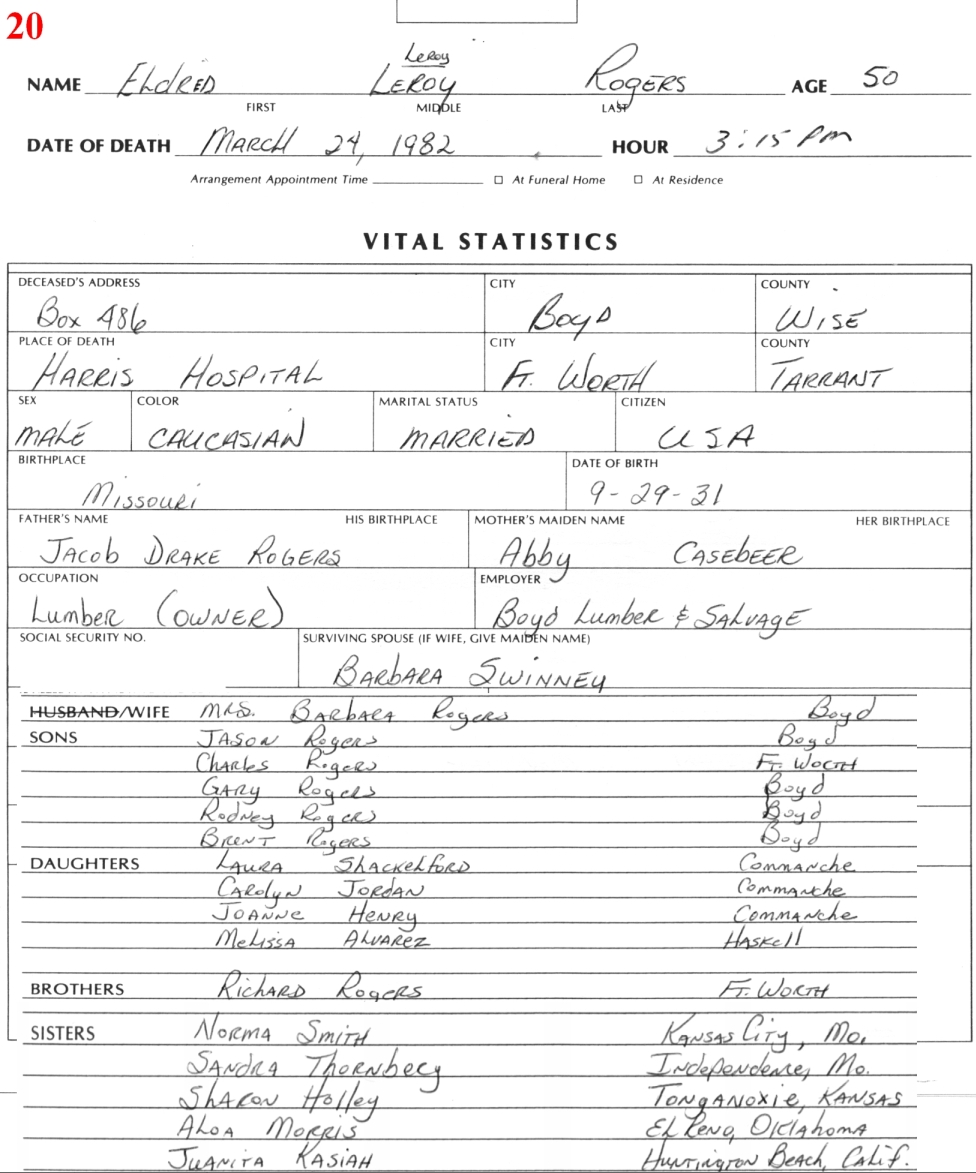 20
Leroy
NAME Eldred Leroy Rogers AGE 50
FIRST MIDDLE LAST
DATE OF DEATH March 24, 1982 HOUR 3:15 PM
Arrangement Appointment Time ☐ At Funeral Home ☐ At Residence
VITAL STATISTICS
DECEASED'S ADDRESS CITY COUNTY
Box 486 Boyd Wise
PLACE OF DEATH CITY COUNTY
Harris Hospital Ft. Worth Tarrant
SEX COLOR MARITAL STATUS CITIZEN
Male Caucasian Married USA
BIRTHPLACE DATE OF BIRTH
Missouri 9-29-31
FATHER'S NAME HIS BIRTHPLACE MOTHER'S MAIDEN NAME HER BIRTHPLACE
Jacob Drake Rogers Abby Casebeer
OCCUPATION EMPLOYER
Lumber (Owner) Boyd Lumber & Salvage
SOCIAL SECURITY NO. SURVIVING SPOUSE (IF WIFE, GIVE MAIDEN NAME)
Barbara Swinney
HUSBAND/WIFE Mrs. Barbara Rogers Boyd
SONS Jason Rogers Boyd
Charles Rogers Ft. Worth
Gary Rogers Boyd
Rodney Rogers Boyd
Brent Rogers Boyd
DAUGHTERS Laura Shackelford Commanche
Carolyn Jordan Commanche
Joanne Henry Commanche
Melissa Alvarez Haskell
BROTHERS Richard Rogers Ft. Worth
SISTERS Norma Smith Kansas City, Mo.
Sandra Thornbecy Independence, Mo.
Sharon Holley Tonganoxie, Kansas
Aloa Morris El Reno, Oklahoma
Juanita Kasiah Huntington Beach, Calif.